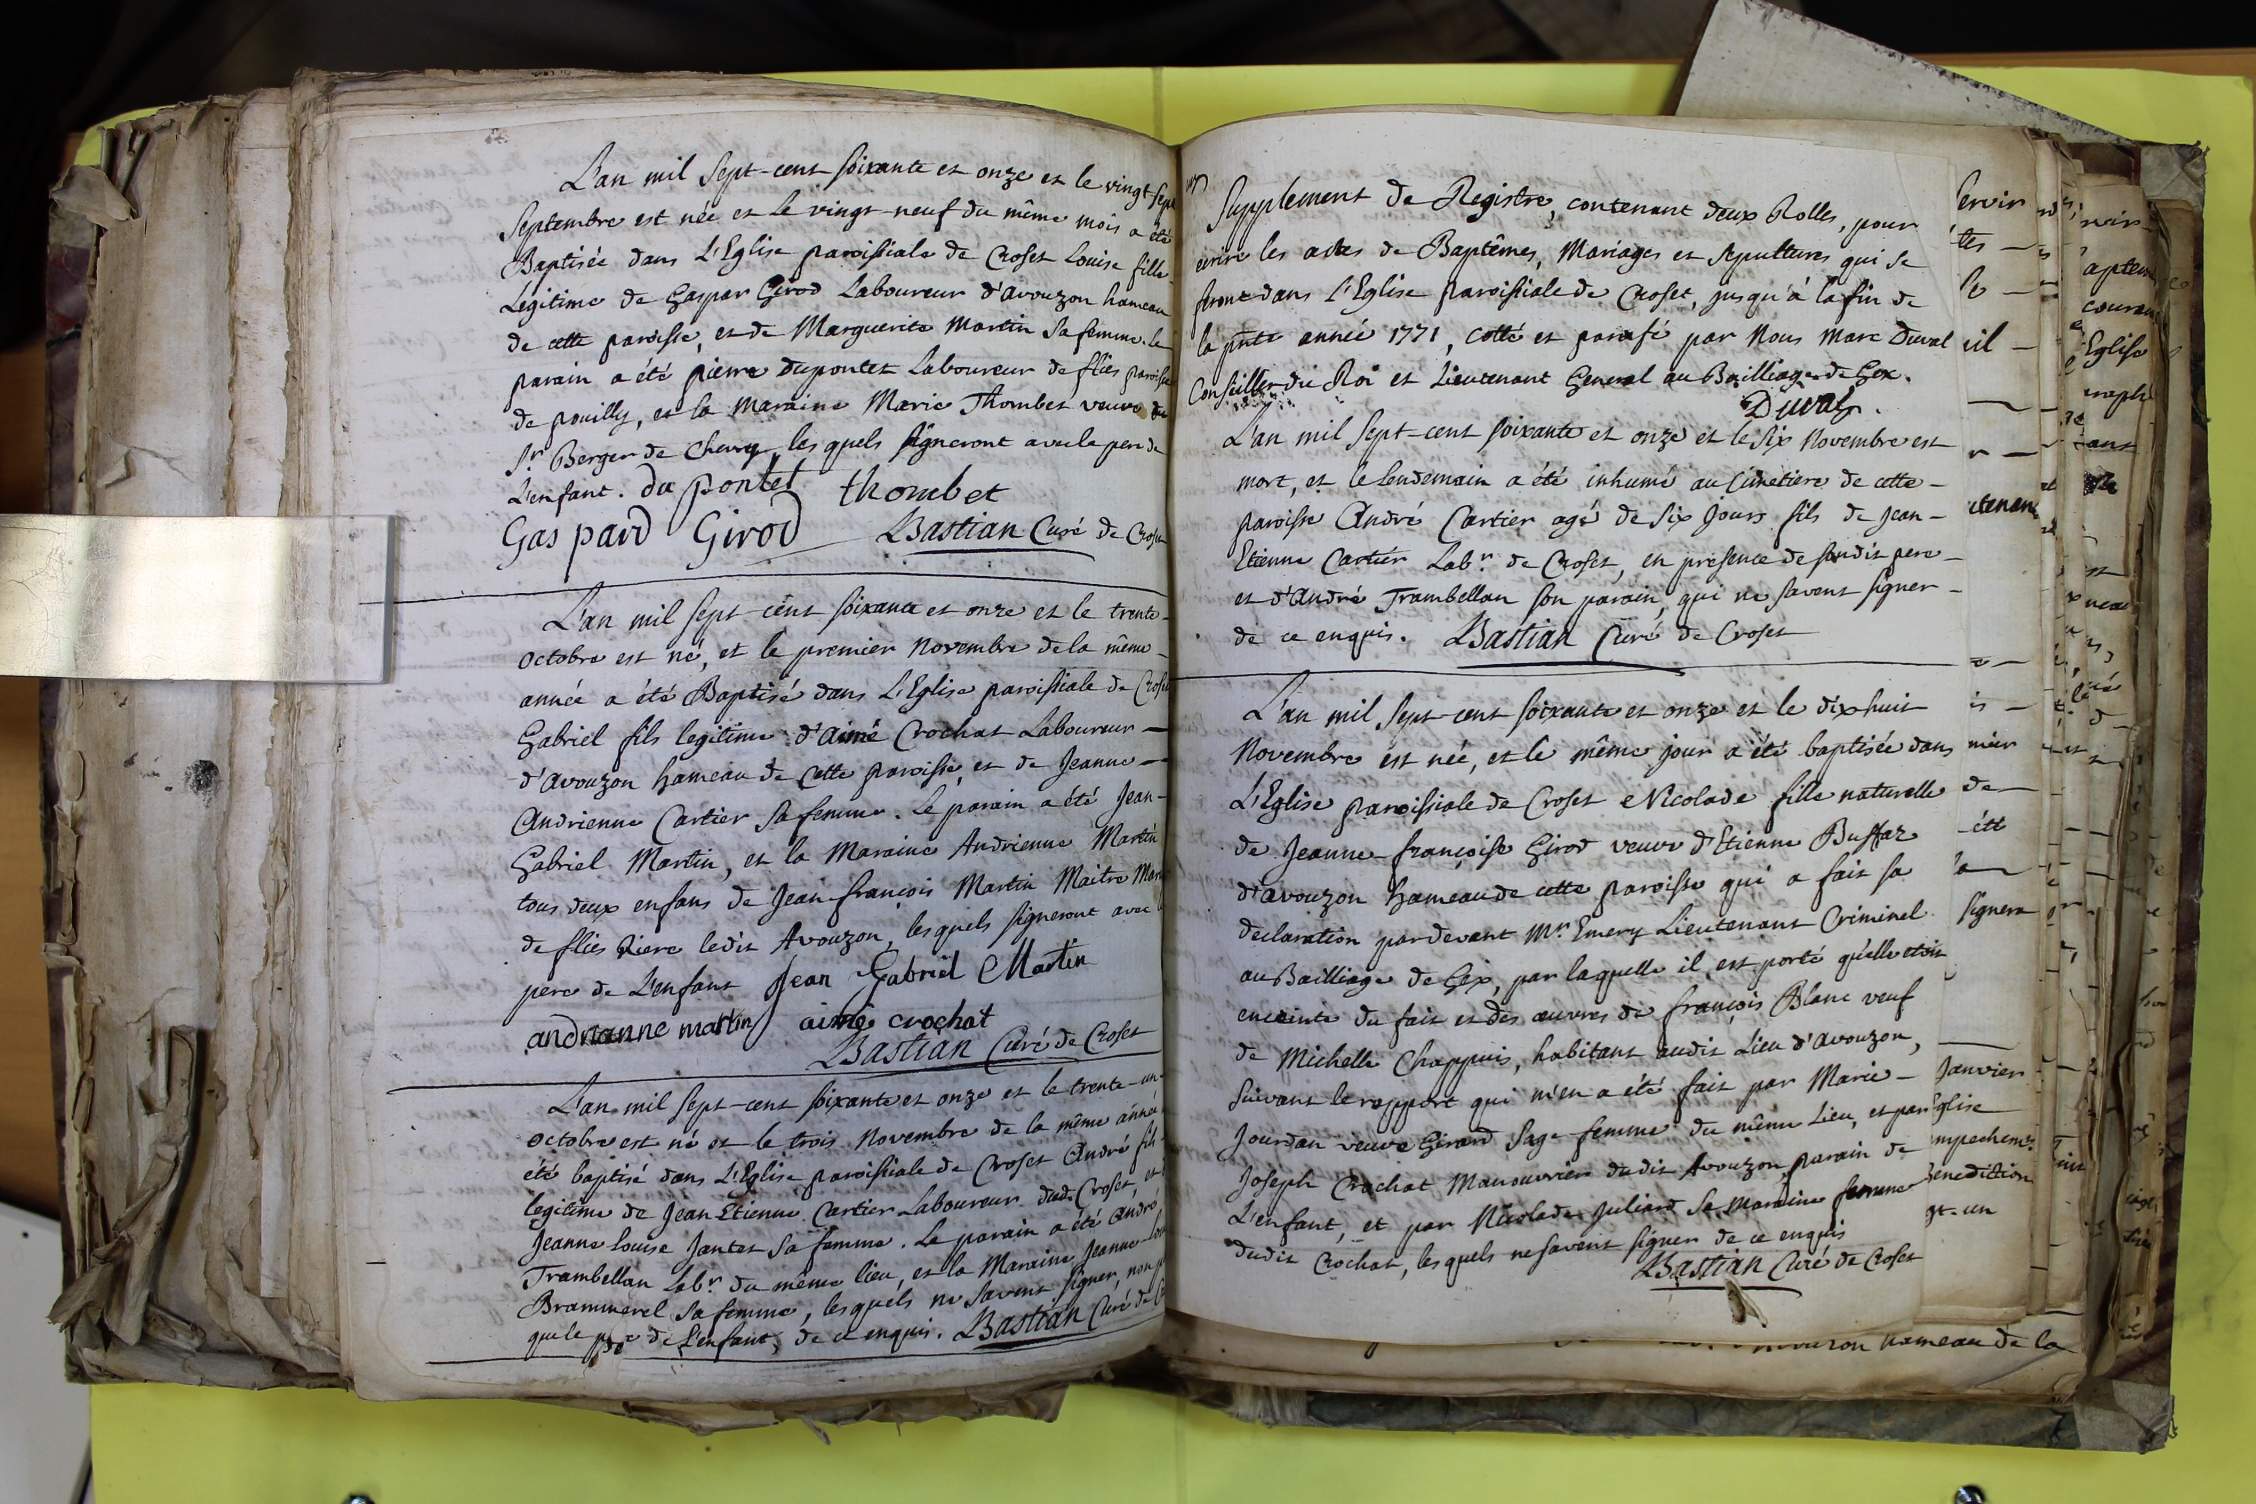 L'an mil sept-cent soixante et onze et le vingt-sept
Septembre est née et le vingt-neuf du même mois a été
Baptisée dans L'Eglise paroissiale de Croset Louise fille
Legitime de Gaspar Girod Laboureur d'avouzon hameau
de cette paroisse, et de Marguerite Martin sa femme. le
parain a été pierre Dupontet Laboureur de flies paroisse
de pouilly, et la Maraine Marie Thombet veuve du
Sr Berger de Chevry les quels signeront avec le pere de
L'enfant. du pontet thombet
Gaspard Girod Bastian Curé de Croset
L'an mil sept-cent soixante et onze et le trente
octobre est né, et le premier Novembre de la même
année a été Baptisé dans L'Eglise paroissiale de Croset
Gabriel fils legitime d'aimé Crochat Laboureur
d'avouzon hameau de cette paroisse, et de Jeanne
Andrienne Cartier sa femme. Le parain a été Jean-
Gabriel Martin, et la Maraine Andrienne Martin
tous deux enfans de Jean françois Martin Maitre
de flies riere ledit Avouzon, lesquels signeront avec
pere de L'enfant Jean Gabriel Martin
andrianne martin aimé crochat
Bastian Curé de Croset
L'an mil sept-cent soixante et onze et le trente-un
octobre est né et le trois Novembre de la même année
été baptisé dans L'Eglise paroissiale de Croset André fils
legitime de Jean Etienne Cartier Laboureur dud. Croset, et
Jeanne Louise Jantet sa femme. Le parain a été André
Trambellan Labr. du même lieu, et la Maraine Jeanne
Brammerel sa femme, lesquels ne savent signer, non
que le pere de L'enfant, de ce enquis. Bastian Curé de
Supplement de Registre, contenant deux Rolles, pour
ecrire les actes de Baptêmes, Mariages et Sepultures qui se
feront dans L'Eglise paroissiale de Croset, jusqu'à la fin de
la pnte année 1771, cotté et parafé par Nous Marc Duval
Conseiller du Roi et Lieutenant General au Bailliage de Gex.
Duval.
L'an mil sept-cent soixante et onze et le six Novembre est
mort, et le Lendemain a été inhumé au Cimetiere de cette
paroisse André Cartier agé de six Jours fils de Jean-
Etienne Cartier Labr. de Croset, en presence de sondit pere
et d'André Trambellan son parain, qui ne savent signer
de ce enquis. Bastian Curé de Croset
L'an mil sept-cent soixante et onze et le dix-huit
Novembre est née, et le même jour a été baptisée dans
L'Eglise paroissiale de Croset Nicolade fille naturelle
de Jeanne-françoise Girod veuve d'Etienne Buffaz
d'avouzon hameau de cette paroisse qui a fait sa
declaration pardevant Mr Emery Lieutenant Criminel
au Bailliage de Gex, par laquelle il est porté qu'elle etoit
enceinte du fait et des œuvres de françois Blanc veuf
de Michelle Chappuis, habitant audit Lieu d'avouzon,
Suivant le rapport qui m'en a été fait par Marie
Jourdan veuve Girard Sage femme du même Lieu, et par
Joseph Crochat Manouvrier dudit Avouzon parain de
L'enfant, et par Nicolade Juliard sa Maraine femme
dudit Crochat, lesquels ne savent signer de ce enquis
Bastian Curé de Croset
signera
Janvier
Benediction
hameau de la